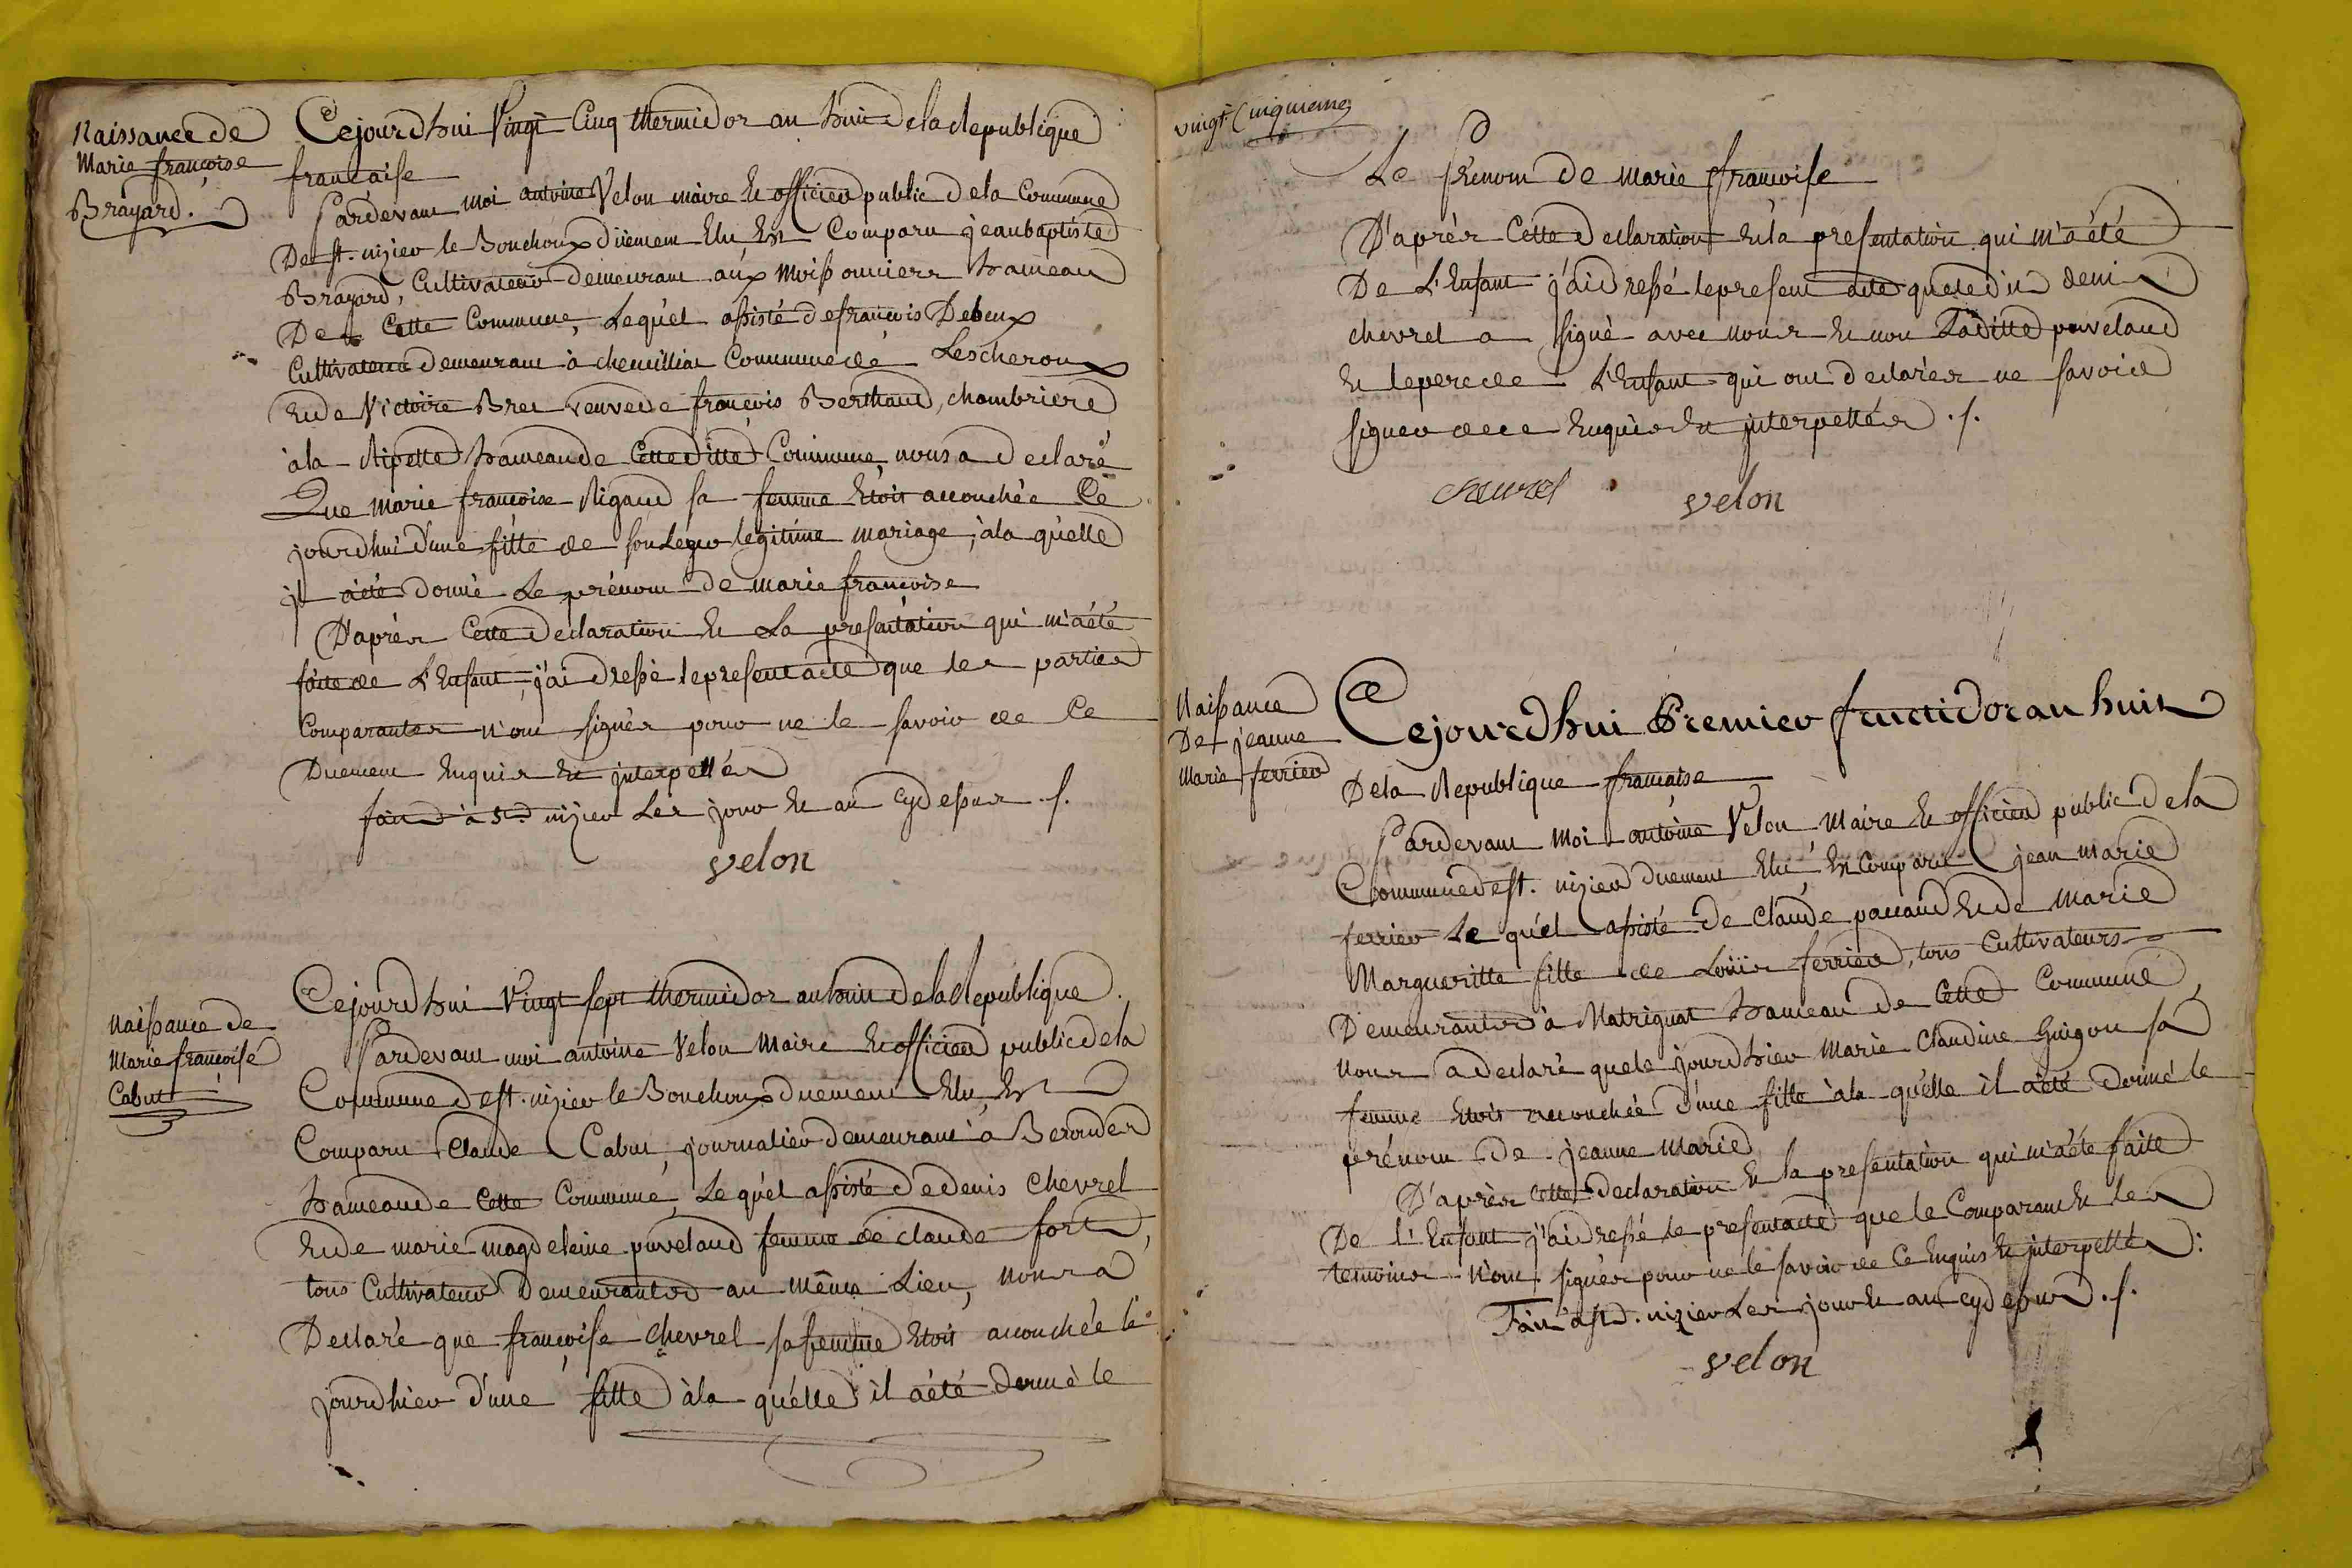 Naissance de
Marie françoise
Brayard.
Cejourdhui Vingt Cinq thermidor an huit de la Republique
francaise
Pardevant moi antoine Velon maire et officier public de la Commune
De st. nizier le Bouchoux düement Elu Est Comparu jean baptiste
Brayard, Cultivateur demeurant aux Moissonniers hameau
De Cette Commune, Lequel assisté de francois Debeux
Cultivateur demeurant à chemillia Commune de Lescheroux
Et de Victoire Bret veuve de françois Berthaud, chambriere
à la Ripette hameau de Cette ditte Commune, nous a declaré
Que marie francoise Rigaud sa femme Etoit accouchée Ce
jourdhui d'une fille de son Legio legitime mariage, à la quelle
jl a été donné Le prénom de marie francoise
D'après Cette Declaration Et La presentation qui m'a été
faite de L'Enfant, j'ai dressé le present acte que les parties
Comparantes n'ont signés pour ne le savoir de Ce
Duement Enquis Et jnterpellés
fait à St. nizier Les jour Et an Cydessus ./.
velon
Naissance de
Marie francoise
Cabut
Cejourdhui Vingt sept thermidor an huit de la Republique
Pardevant moi antoine Velon Maire Et officier public de la
Commune de st. nizier le Bouchoux duement Elu, Est
Comparu Claude Cabut, journalier demeurant à Berondes
hameau de Cette Commune, Lequel assisté de denis Chevrel
Et de marie magdeleine puvelaud femme de claude fort,
tous Cultivateurs Demeurantes au même Lieu, nous a
Declaré que francoise chevrel sa femme Etoit accouchée le
jourdhier d'une fille à la quelle il a été donné le
vingt Cinquieme
Le Prenom de marie francoise
D'après Cette Declaration Et la presentation qui m'a été
De L'Enfant j'ai dressé le present acte que le dit deni
chevrel a signé avec nous Et non Laditte puvelaud
Et le pere de L'Enfant qui ont declarés ne savoir
signer de ce Enquis Et jnterpellés ./.
chevrel velon
Naissance
De jeanne
Marie ferrier
Cejourdhui Premier fructidor an huit
De la Republique francaise
Pardevant Moi antoine Velon Maire Et officier public de la
Commune de st. nizier duement Elu, Est Comparu jean marie
ferrier Le quel assisté De Claude pauaud Et de Marie
Margueritte fille de Loüis ferrier, tous Cultivateurs
Demeurantes à Matrignat hameau de Cette Commune,
Nous a declaré que le jourdhier Marie Claudine Guigon sa
femme Etoit accouchée d'une fille à la quelle il a été donné le
prénom De jeanne Marie
D'après cette Declaration Et la presentation qui m'a été faite
De l'Enfant j'ai dressé le present acte que le Comparant Et les
temoins N'ont signés pour ne le savoir de Ce Enquis Et jnterpellés :
Fait à st. nizier Les jour Et an cydessus ./.
velon